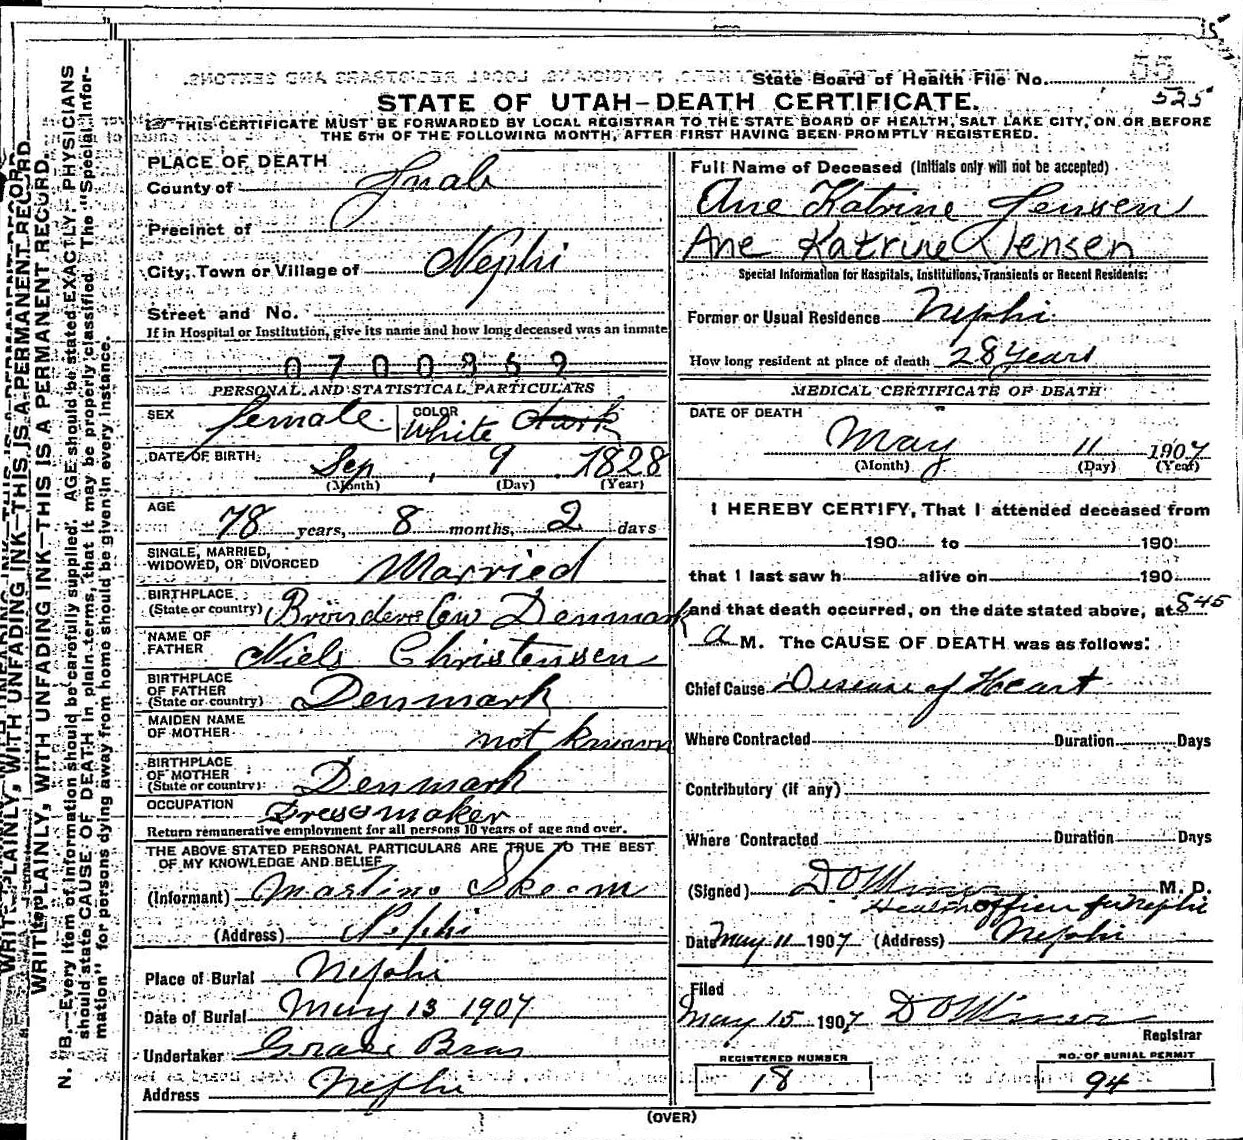 15
State Board of Health File No. 55
525
STATE OF UTAH-DEATH CERTIFICATE.
THIS CERTIFICATE MUST BE FORWARDED BY LOCAL REGISTRAR TO THE STATE BOARD OF HEALTH, SALT LAKE CITY, ON OR BEFORE
THE 5TH OF THE FOLLOWING MONTH, AFTER FIRST HAVING BEEN PROMPTLY REGISTERED.
WRITE PLAINLY, WITH UNFADING INK—THIS IS A PERMANENT RECORD.
WRITE PLAINLY, WITH UNFADING INK—THIS IS A PERMANENT RECORD.
N. B.—Every item of information should be carefully supplied. AGE should be stated EXACTLY. PHYSICIANS
should state CAUSE OF DEATH in plain terms, that it may be properly classified. The "Special Infor-
mation" for persons dying away from home should be given in every instance.
PLACE OF DEATH
County of Juab
Precinct of
City, Town or Village of Nephi
Street and No.
If in Hospital or Institution, give its name and how long deceased was an inmate
0700969
PERSONAL AND STATISTICAL PARTICULARS
SEX female COLOR White dark
DATE OF BIRTH. Sep 9 1828
(Month) (Day) (Year)
AGE
78 years, 8 months, 2 days
SINGLE, MARRIED,
WIDOWED, OR DIVORCED Married
BIRTHPLACE
(State or country) Denmark
NAME OF
FATHER Niels Christensen
BIRTHPLACE
OF FATHER
(State or country) Denmark
MAIDEN NAME
OF MOTHER not known
BIRTHPLACE
OF MOTHER
(State or country) Denmark
OCCUPATION Dressmaker
Return remunerative employment for all persons 10 years of age and over.
THE ABOVE STATED PERSONAL PARTICULARS ARE TRUE TO THE BEST
OF MY KNOWLEDGE AND BELIEF
(Informant) Martino Skeem
(Address) Nephi
Place of Burial Nephi
Date of Burial May 13 1907
Undertaker Grace Bros
Address Nephi
Full Name of Deceased (Initials only will not be accepted)
Ane Katrine Jensen
Ane Katrine Jensen
Special Information for Hospitals, Institutions, Transients or Recent Residents:
Former or Usual Residence Nephi
How long resident at place of death 28 Years
MEDICAL CERTIFICATE OF DEATH
DATE OF DEATH
May 11 1907
(Month) (Day) (Year)
I HEREBY CERTIFY, That I attended deceased from
190 to 190
that I last saw h alive on 190
and that death occurred, on the date stated above, at 8 45
a M. The CAUSE OF DEATH was as follows:
Chief Cause Disease of Heart
Where Contracted Duration Days
Contributory (if any)
Where Contracted Duration Days
(Signed) D O Miner M. D.
Health officer for Nephi
Date May 11 1907 (Address) Nephi
Filed
May 15 1907 D O Miner
Registrar
REGISTERED NUMBER
18
NO. OF BURIAL PERMIT
94
(OVER)